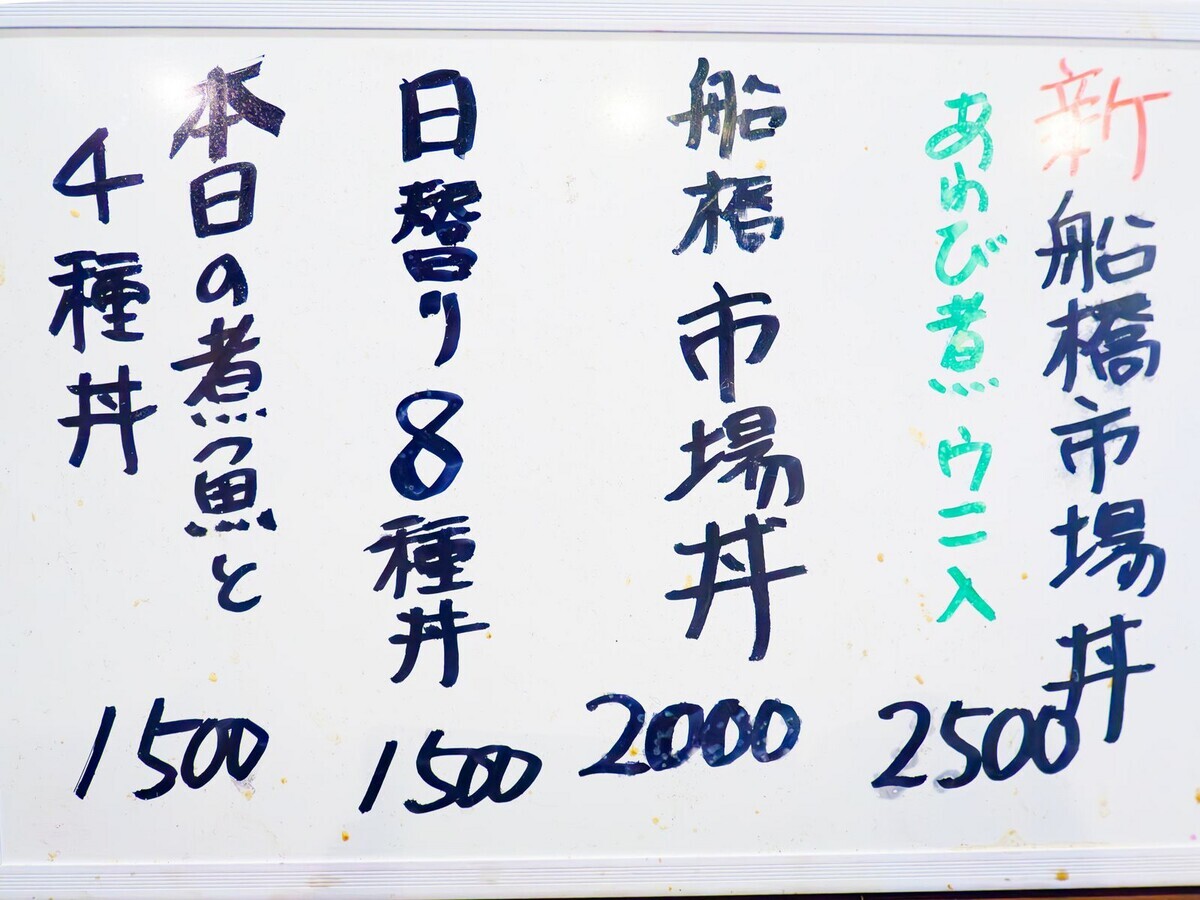 新船橋市場丼
あわび煮 ウニ入
2500
船橋市場丼
2000
日替り8種丼
1500
本日の煮魚と
4種丼
1500